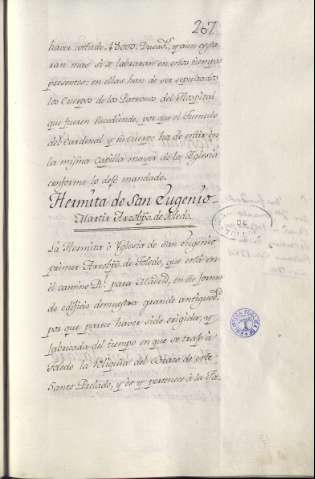 267
haver costado 18000. Ducad.s, y aun costa
ran mas si se labraran en estos tiempos
presentes: en ellas han de ser sepultados
los Cuerpos de los Patronos del Hospital
que fueren sucediendo, por que el
del Cardenal y su cuerpo ha de estar en
la misma Capilla mayor de la Iglesia
conforme lo dejó mandado.
Hermita de San Eugenio
Martir Arzobispo de Toledo.
La Hermita ò Yglesia de San Eugenio
primer Arzobispo de Toledo, que está en
el camino R.l para Madrid, en su forma
de edificio demuestra grande antiguedad
por que parece haver sido erigida, y
fabricada del tiempo en que se trajo à
Toledo la Reliquia del Brazo de este
Santo Prelado, y es y pertenece à la